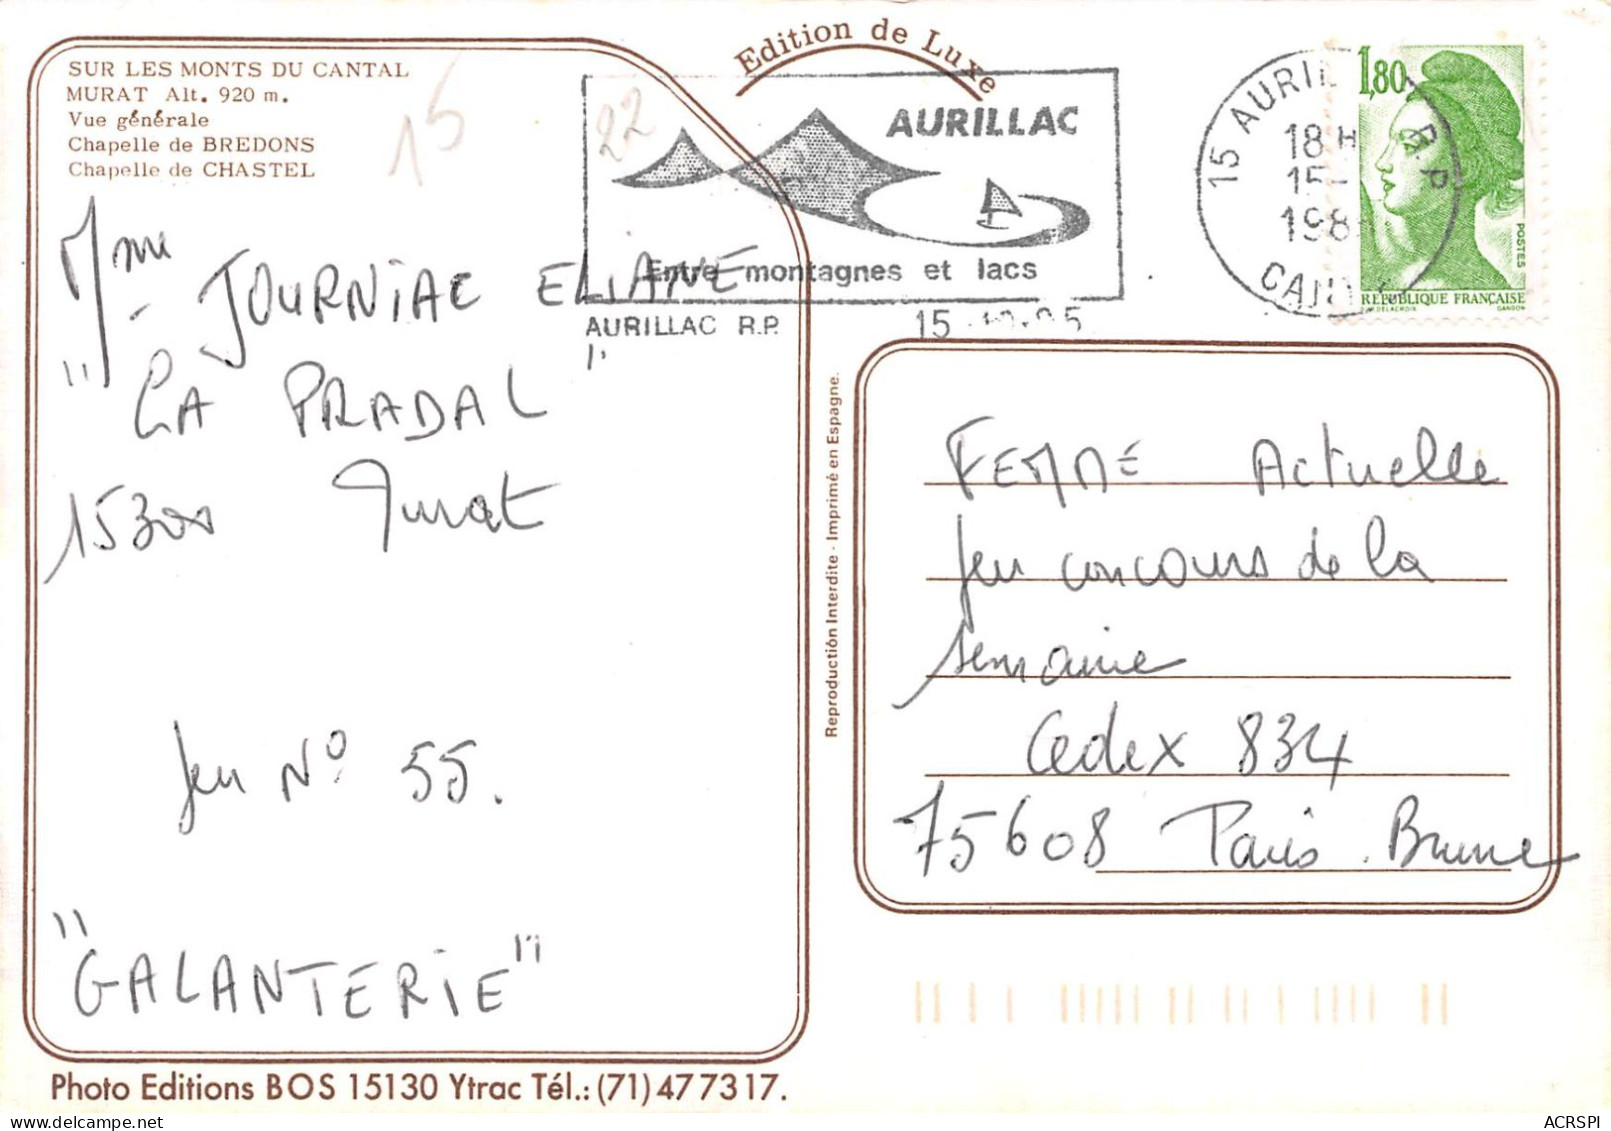 Edition de Luxe
SUR LES MONTS DU CANTAL
MURAT Alt. 920 m.
Vue générale
Chapelle de BREDONS
Chapelle de CHASTEL
15
22
AURILLAC
Entre montagnes et lacs
AURILLAC R.P.
15
15 AURIL R.P
18H
15-
198
CAN
1,80
POSTES
REPUBLIQUE FRANÇAISE
DELACROIX
GANDON
Mme JOURNIAC ELIANE
"LA PRADAL"
15300 Murat
Jeu N° 55.
"GALANTERIE"
Reproduction Interdite - Imprimé en Espagne.
FEMME Actuelle
Jeu concours de la
semaine
Cedex 834
75608 Paris . Brune
Photo Editions BOS 15130 Ytrac Tél.: (71) 47 73 17.
ACRSPI